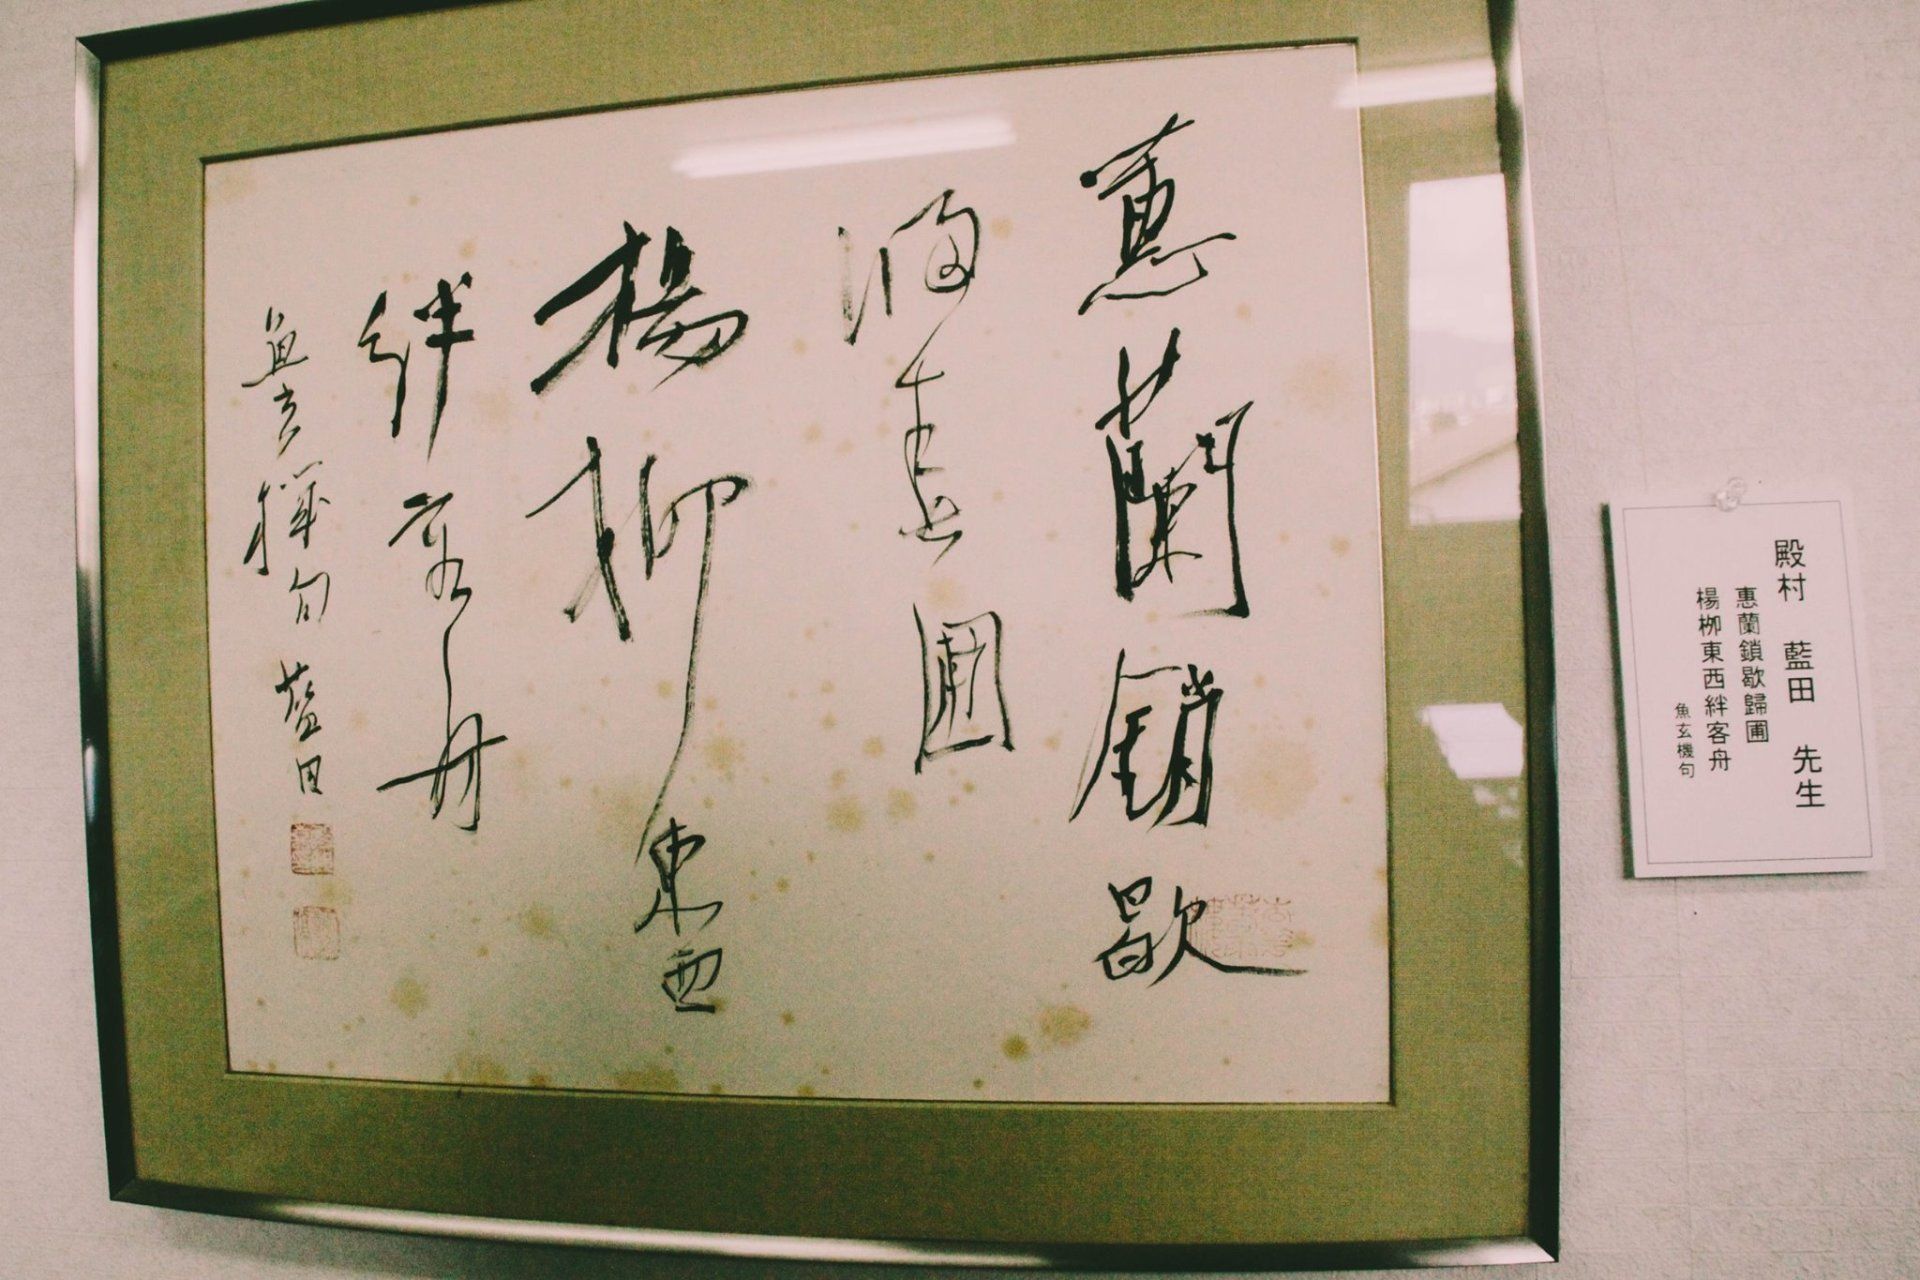 蕙蘭銷歇
歸春圃
楊柳東西
絆客舟
魚玄機句 藍田
殿村 藍田 先生
惠蘭鎖歇歸圃
楊栁東西絆客舟
魚玄機句